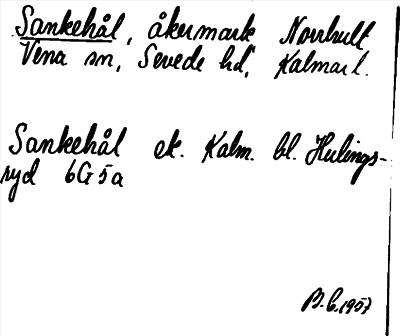 Sankehål, åkermark Norrhult
Vena sn, Sevede hd, Kalmar l.
Sankehål ek. Kalm. bl. Hulings-
ryd 6G5a
B.L. 1957